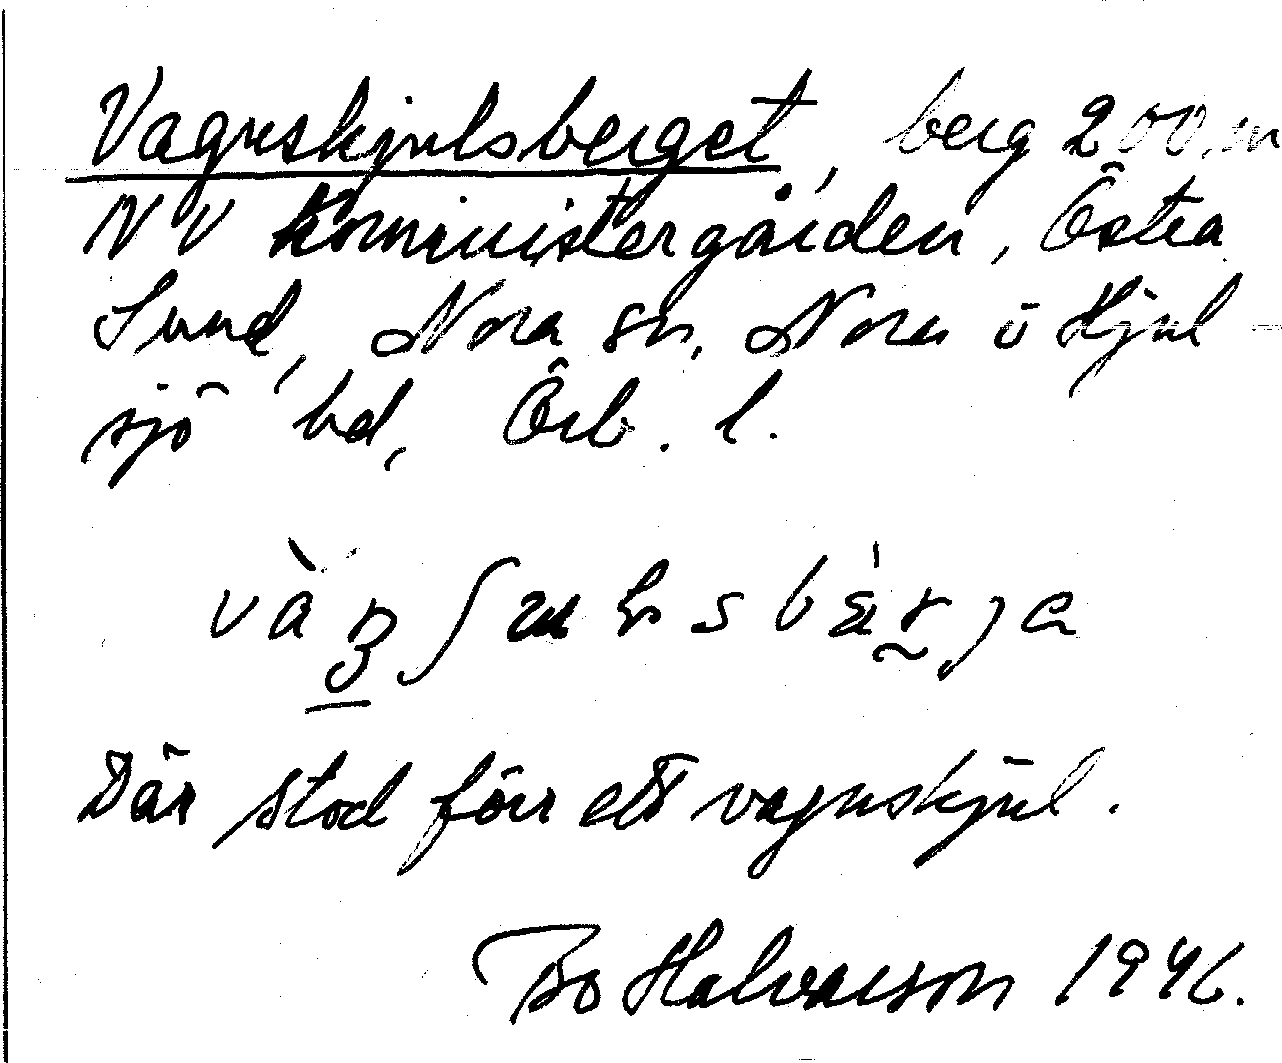 Vagnskjulsberget, berg 200 m
NV Komministergården, Östra
Sund, Nora sn, Nora o Hjul-
sjö hd, Örb. l.
Där stod förr ett vagnskjul.
Bo Halvarson 1946.